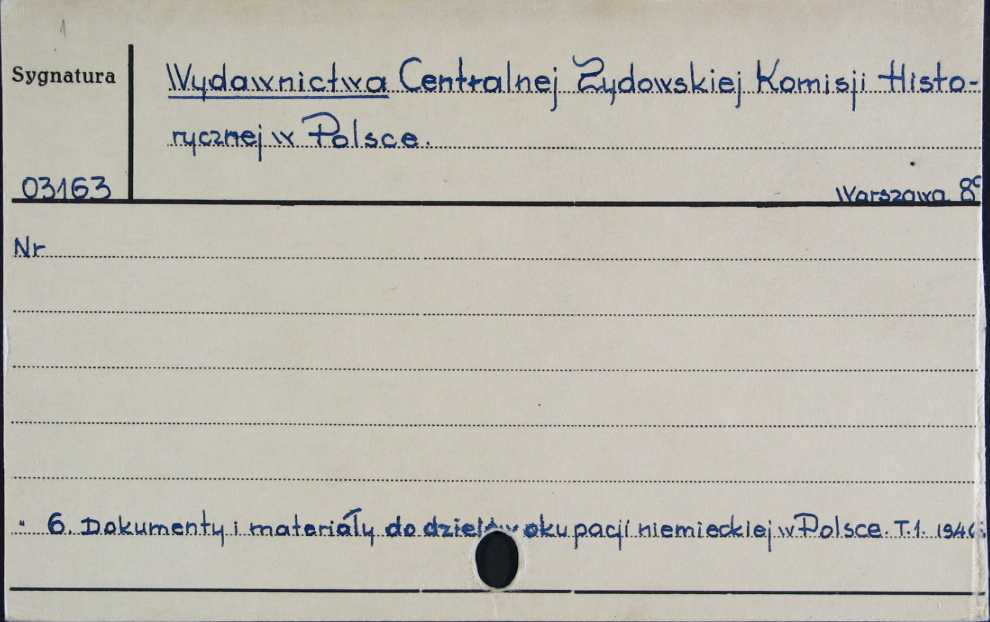 1
Sygnatura
Wydawnictwa Centralnej Żydowskiej Komisji Histo-
rycznej w Polsce.
03163
Warszawa 8°
Nr
" 6. Dokumenty i materiały do dziejów okupacji niemieckiej w Polsce. T.1. 1946